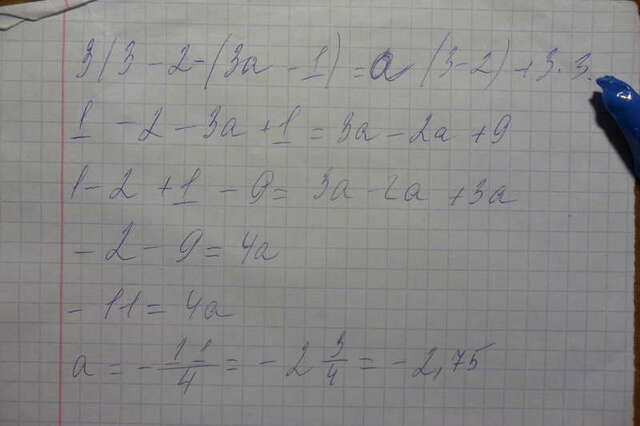 3/3-2-(3a-1)=a(3-2)+3·3
1-2-3a+1=3a-2a+9
1-2+1-9=3a-2a+3a
-2-9=4a
-11=4a
a=-11/4=-2 3/4=-2,75